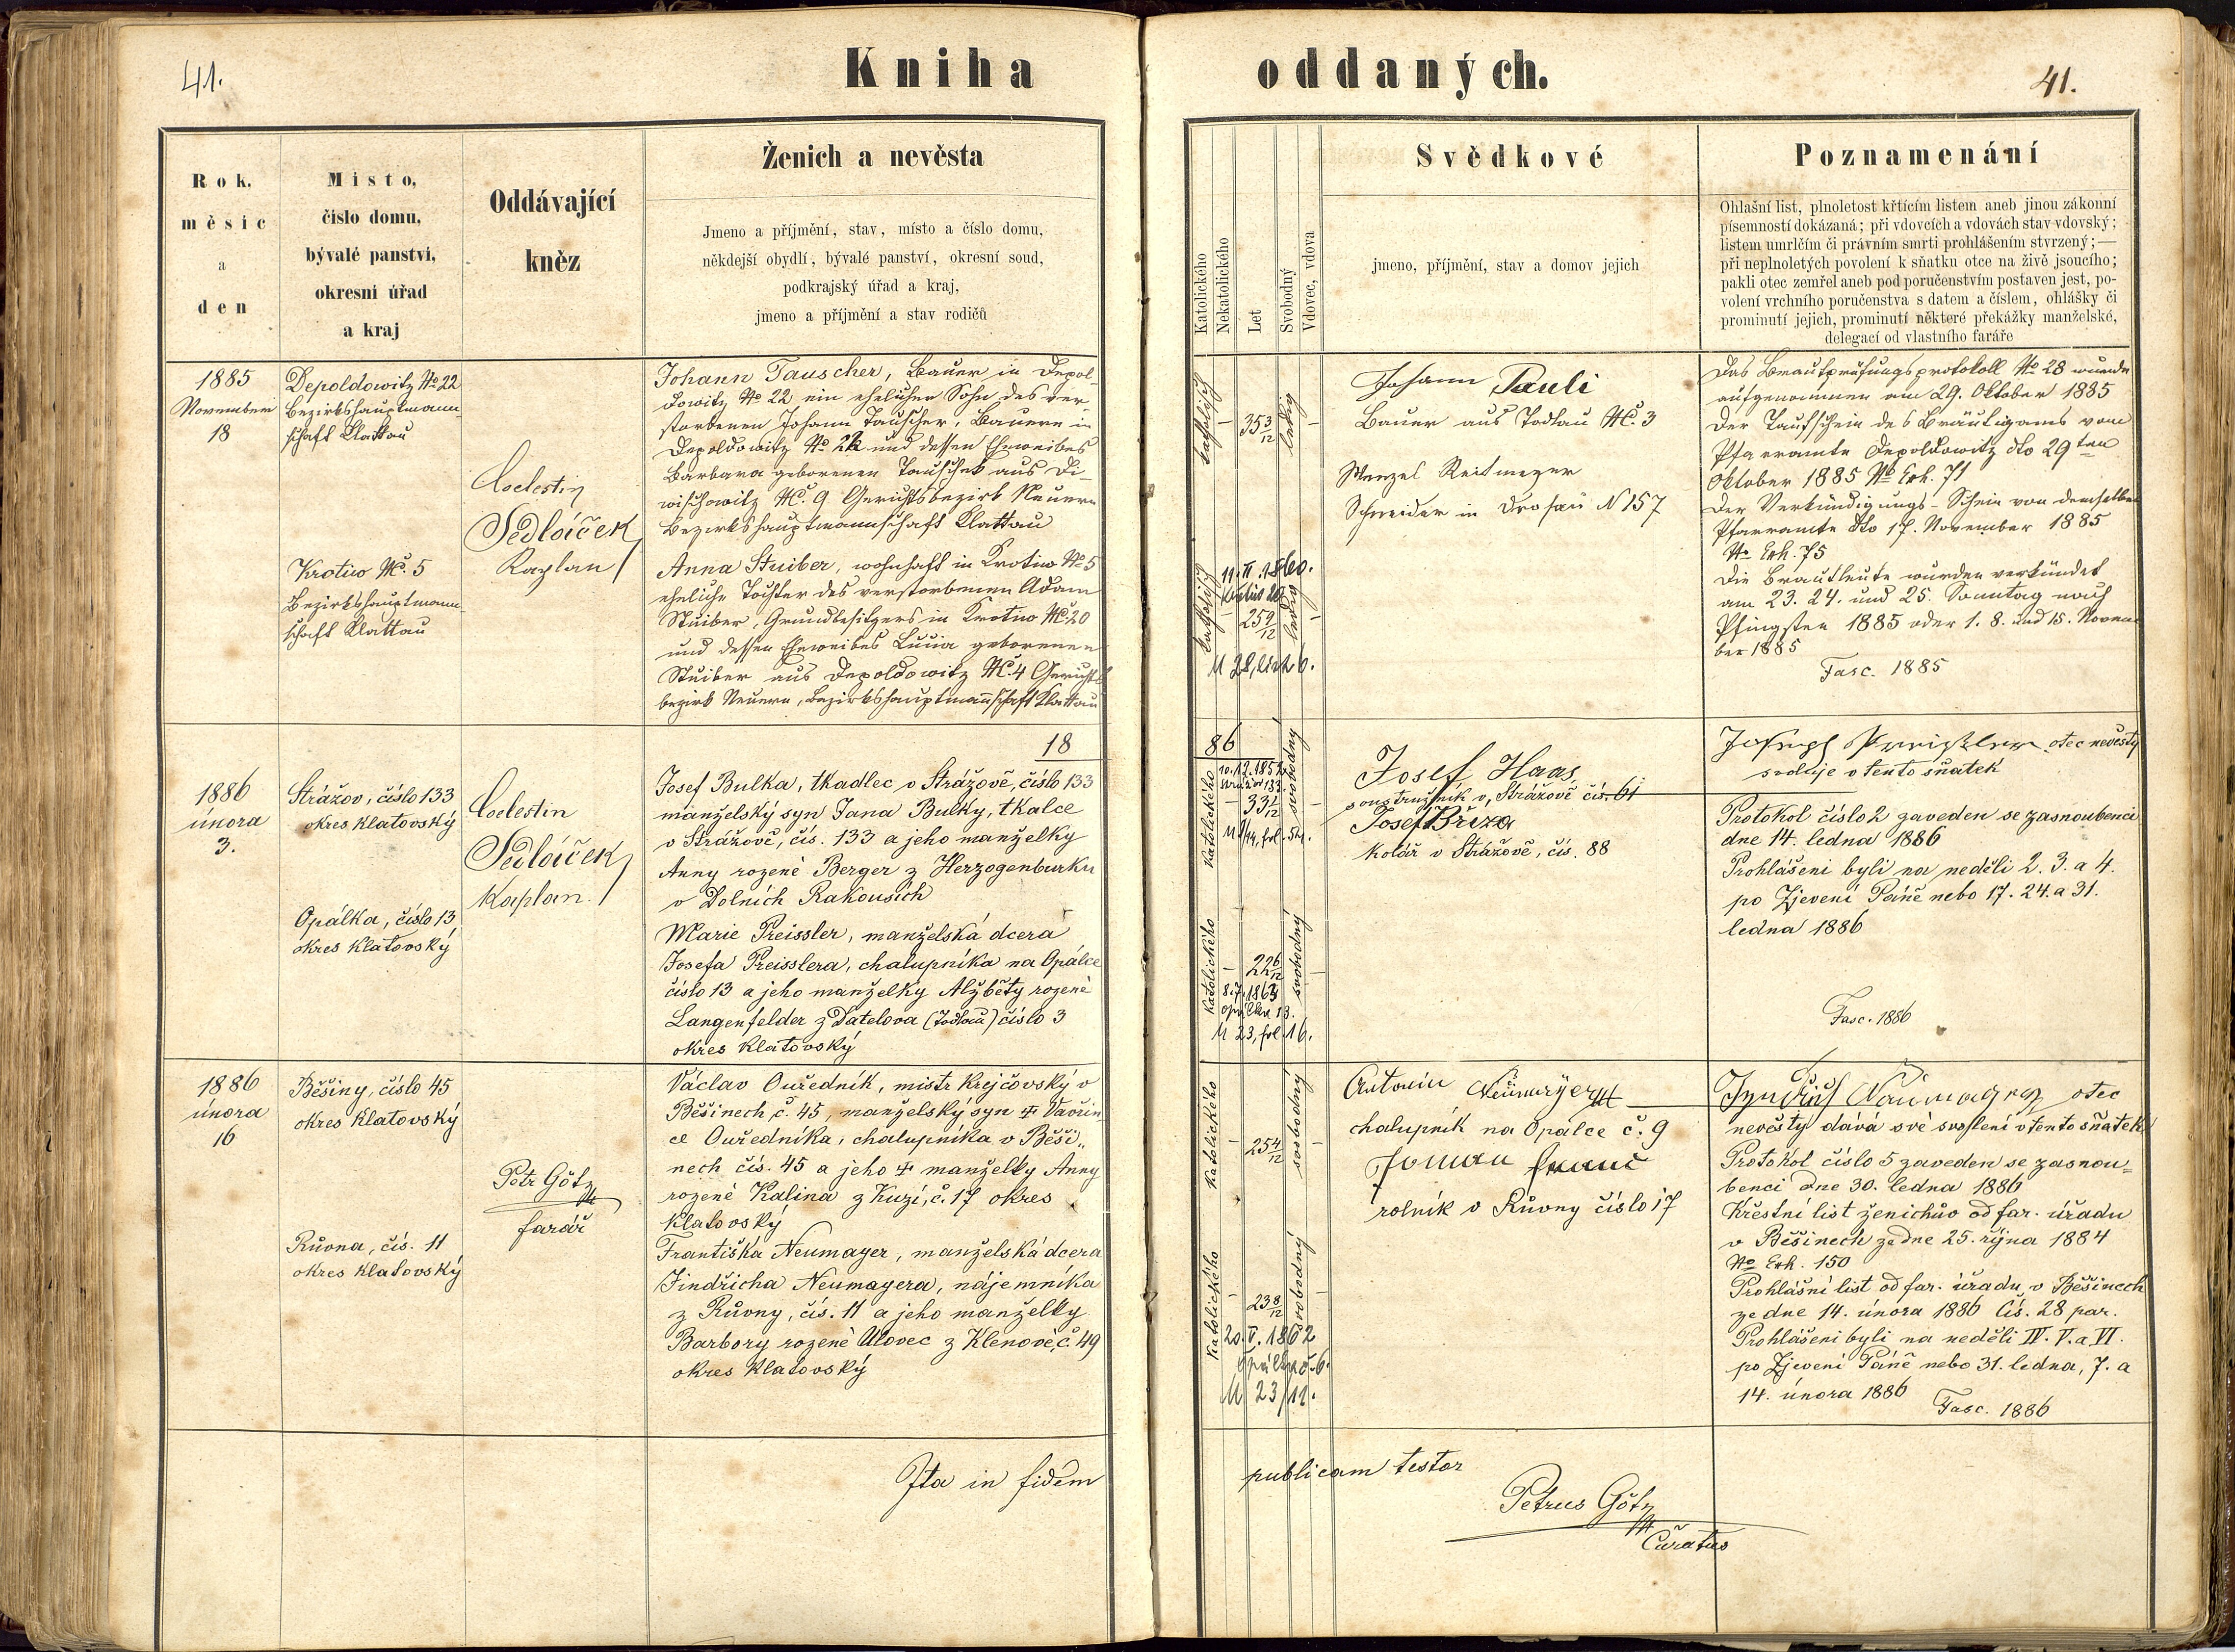 41.
Kniha oddaných.
41.
Rok, měsíc a den
Místo, číslo domu, bývalé panství, okresní úřad a kraj
Oddávající kněz
Ženich a nevěsta
Jmeno a příjmění, stav, místo a číslo domu,
někdejší obydlí, bývalé panství, okresní soud,
podkrajský úřad a kraj,
jmeno a příjmění a stav rodičů
Katolického
Nekatolického
Let
Svobodný
Vdovec, vdova
Svědkové
jmeno, příjmění, stav a domov jejich
Poznamenání
Ohlašní list, plnoletost křtícím listem aneb jinou zákonní
písemností dokázaná; při vdovcích a vdovách stav vdovský;
listem umrlčím či právním smrti prohlášením stvrzený;—
při neplnoletých povolení k sňatku otce na živě jsoucího;
pakli otec zemřel aneb pod poručenstvím postaven jest, po-
volení vrchního poručenstva s datem a číslem, ohlášky či
prominutí jejich, prominutí některé překážky manželské,
delegací od vlastního faráře
1885
November
18
Depoldowitz No 22
Bezirkshauptmann-
schaft Klattau
Krotiw Nc. 5
Bezirkshauptmann-
schaft Klattau
Coelestin
Sedláček
Kaplan
Johann Tauscher, Bauer in Depol-
dowitz No 22 ein ehelicher Sohn des ver-
storbenen Johann Tauscher, Bauern in
Depoldowitz No 22 und dessen Eheweibes
Barbara geborenen Tauschek aus Di-
wischowitz Nc. 9 Gerichtsbezirk Neuern
Bezirkshauptmannschaft Klattau
Anna Stuiber, wohnhaft in Krotiw No 5
eheliche Tochter des verstorbenen Adam
Stuiber, Grundbesitzers in Krotiw Nc 20
und dessen Eheweibes geborenen
Stuiber aus Depoldowitz Nc. 4 Gerichts-
bezirk Neuern, Bezirkshauptmannschaft Klattau
katholisch
35 3/12
ledig
katholisch
11. II. 1860.
25 9/12
ledig
Johann Pauli
Bauer aus Todlau Nc. 3
Wenzel Reitmeyer
Schneider in Drosau N 157
Das Brautprüfungsprotokoll No 28 wurde
aufgenommen am 29. Oktober 1885
Der Taufschein des Bräutigams vom
Pfarramte Depoldowitz dto 29ten
Oktober 1885 No Exh. 71
Der Verkündigungs-Schein von demselben
Pfarramte dto 17. November 1885
No Exh. 75
Die Brautleute wurden verkündet
am 23. 24. und 25. Sonntag nach
Pfingsten 1885 oder 1. 8. und 15. Novem-
ber 1885
Fasc. 1885
18
86
1886
února
3.
Strážov, číslo 133
okres Klatovský
Opálka, číslo 13
okres Klatovský
Coelestin
Sedláček
Kaplan.
Josef Bulka, tkadlec v Strážově, číslo 133
manželský syn Jana Bulky, tkalce
v Strážově, čís. 133 a jeho manželky
Anny rozené Berger z Herzogenburku
v Dolních Rakousích
Marie Preissler, manželská dcera
Josefa Preisslera, chalupníka na Opálce
číslo 13 a jeho manželky Alžběty rozené
Langenfelder z Datelova (Todlau) číslo 3
okres Klatovský
Katolického
33 1/12
svobodný
Katolického
22 6/12
svobodný
8.7.1863
Opálka 13.
M 23, fol. 16.
Josef Haas
soustružník v Strážově čís. 61
Josef Bříza
Kolář v Strážově, čís. 88
Joseph Preissler otec nevěsty
svoluje v tento sňatek
Protokol číslo 2 zaveden se zasnoubenci
dne 14. ledna 1886
Prohlášeni byli na neděli 2. 3. a 4.
po Zjevení Páně nebo 17. 24. a 31.
ledna 1886
Fasc. 1886
1886
února
16
Běšiny, číslo 45
okres Klatovský
Růvna, čís. 11
okres Klatovský
Petr Götz
farář
Václav Ouředník, mistr krejčovský v
Běšinech, č. 45, manželský syn † Vavřin-
ce Ouředníka, chalupníka v Běši-
nech čís. 45 a jeho † manželky Anny
rozené Kalina z Kuzí, č. 17 okres
Klatovský
Františka Neumayer, manželská dcera
Jindřicha Neumayera, nájemníka
z Růvny, čís. 11 a jeho manželky
Barbory rozené Ulovec z Klenové, č. 49
okres Klatovský
Katolického
25 4/12
svobodný
Katolického
23 8/12
svobodný
20. V. 1862
Opálka č. 6.
M 23/12.
Antonín Neümeyer
chalupník na Opálce č. 9
rolník v Růvny číslo 17
otec
nevěsty dává své svolení v tento sňatek
Protokol číslo 5 zaveden se zasnou-
benci dne 30. ledna 1886
Křestní list ženichův od far. úřadu
v Běšinech ze dne 25. října 1884
No Exh. 150
Prohlášní list od far. úřadu v Běšinech
ze dne 14. února 1886 Čís. 28 par.
Prohlášeni byli na neděli IV. V. a VI.
po Zjevení Páně nebo 31. ledna, 7. a
14. února 1886
Fasc. 1886
Ita in fidem publicam testor
Petrus Götz
Curatus